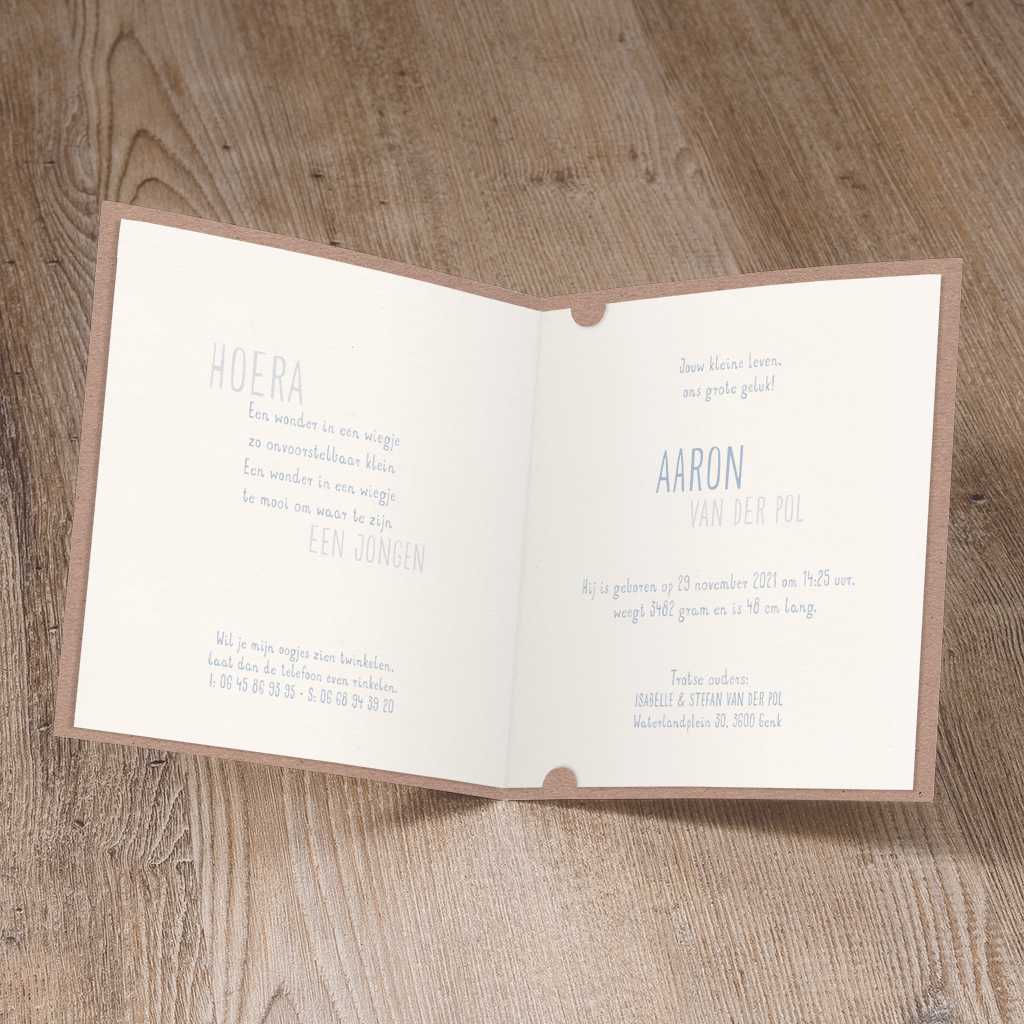 HOERA
Een wonder in een wiegje
zo onvoorstelbaar klein
Een wonder in een wiegje
te mooi om waar te zijn
EEN JONGEN
Wil je mijn oogjes zien twinkelen,
laat dan de telefoon even rinkelen.
I: 06 45 86 93 95 - S: 06 68 94 39 20
Jouw kleine leven,
ons grote geluk!
AARON
VAN DER POL
Hij is geboren op 29 november 2021 om 14:25 uur,
weegt 3482 gram en is 48 cm lang.
Trotse ouders:
ISABELLE & STEFAN VAN DER POL
Waterlandplein 30, 3600 Genk